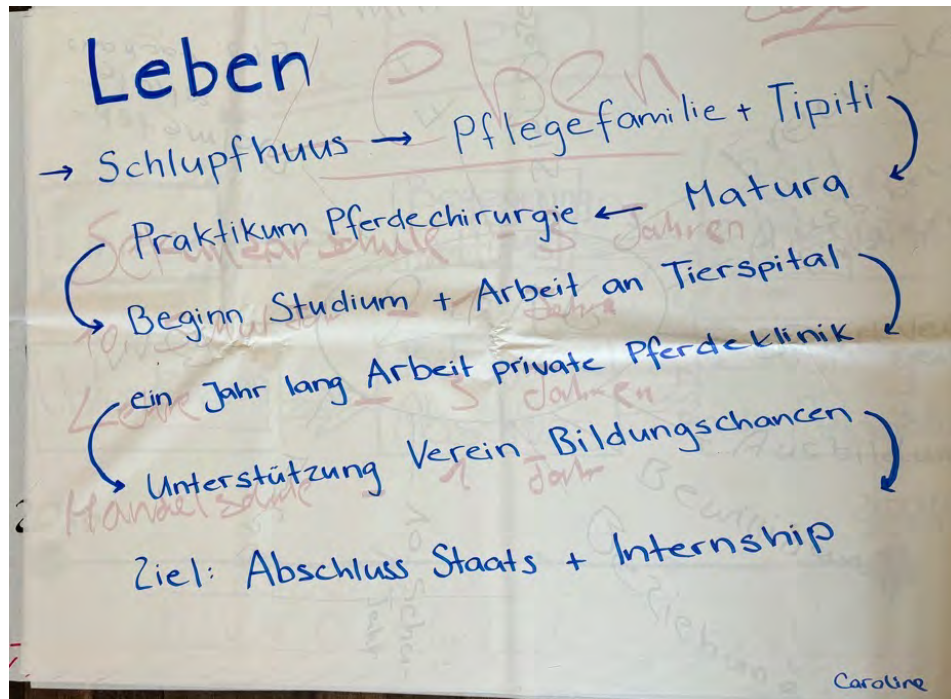 Leben
→ Schlupfhuus → Pflegefamilie + Tipiti
Praktikum Pferdechirurgie ← Matura
Beginn Studium + Arbeit an Tierspital
ein Jahr lang Arbeit private Pferdeklinik
Unterstützung Verein Bildungschancen
Ziel: Abschluss Staats + Internship
Caroline